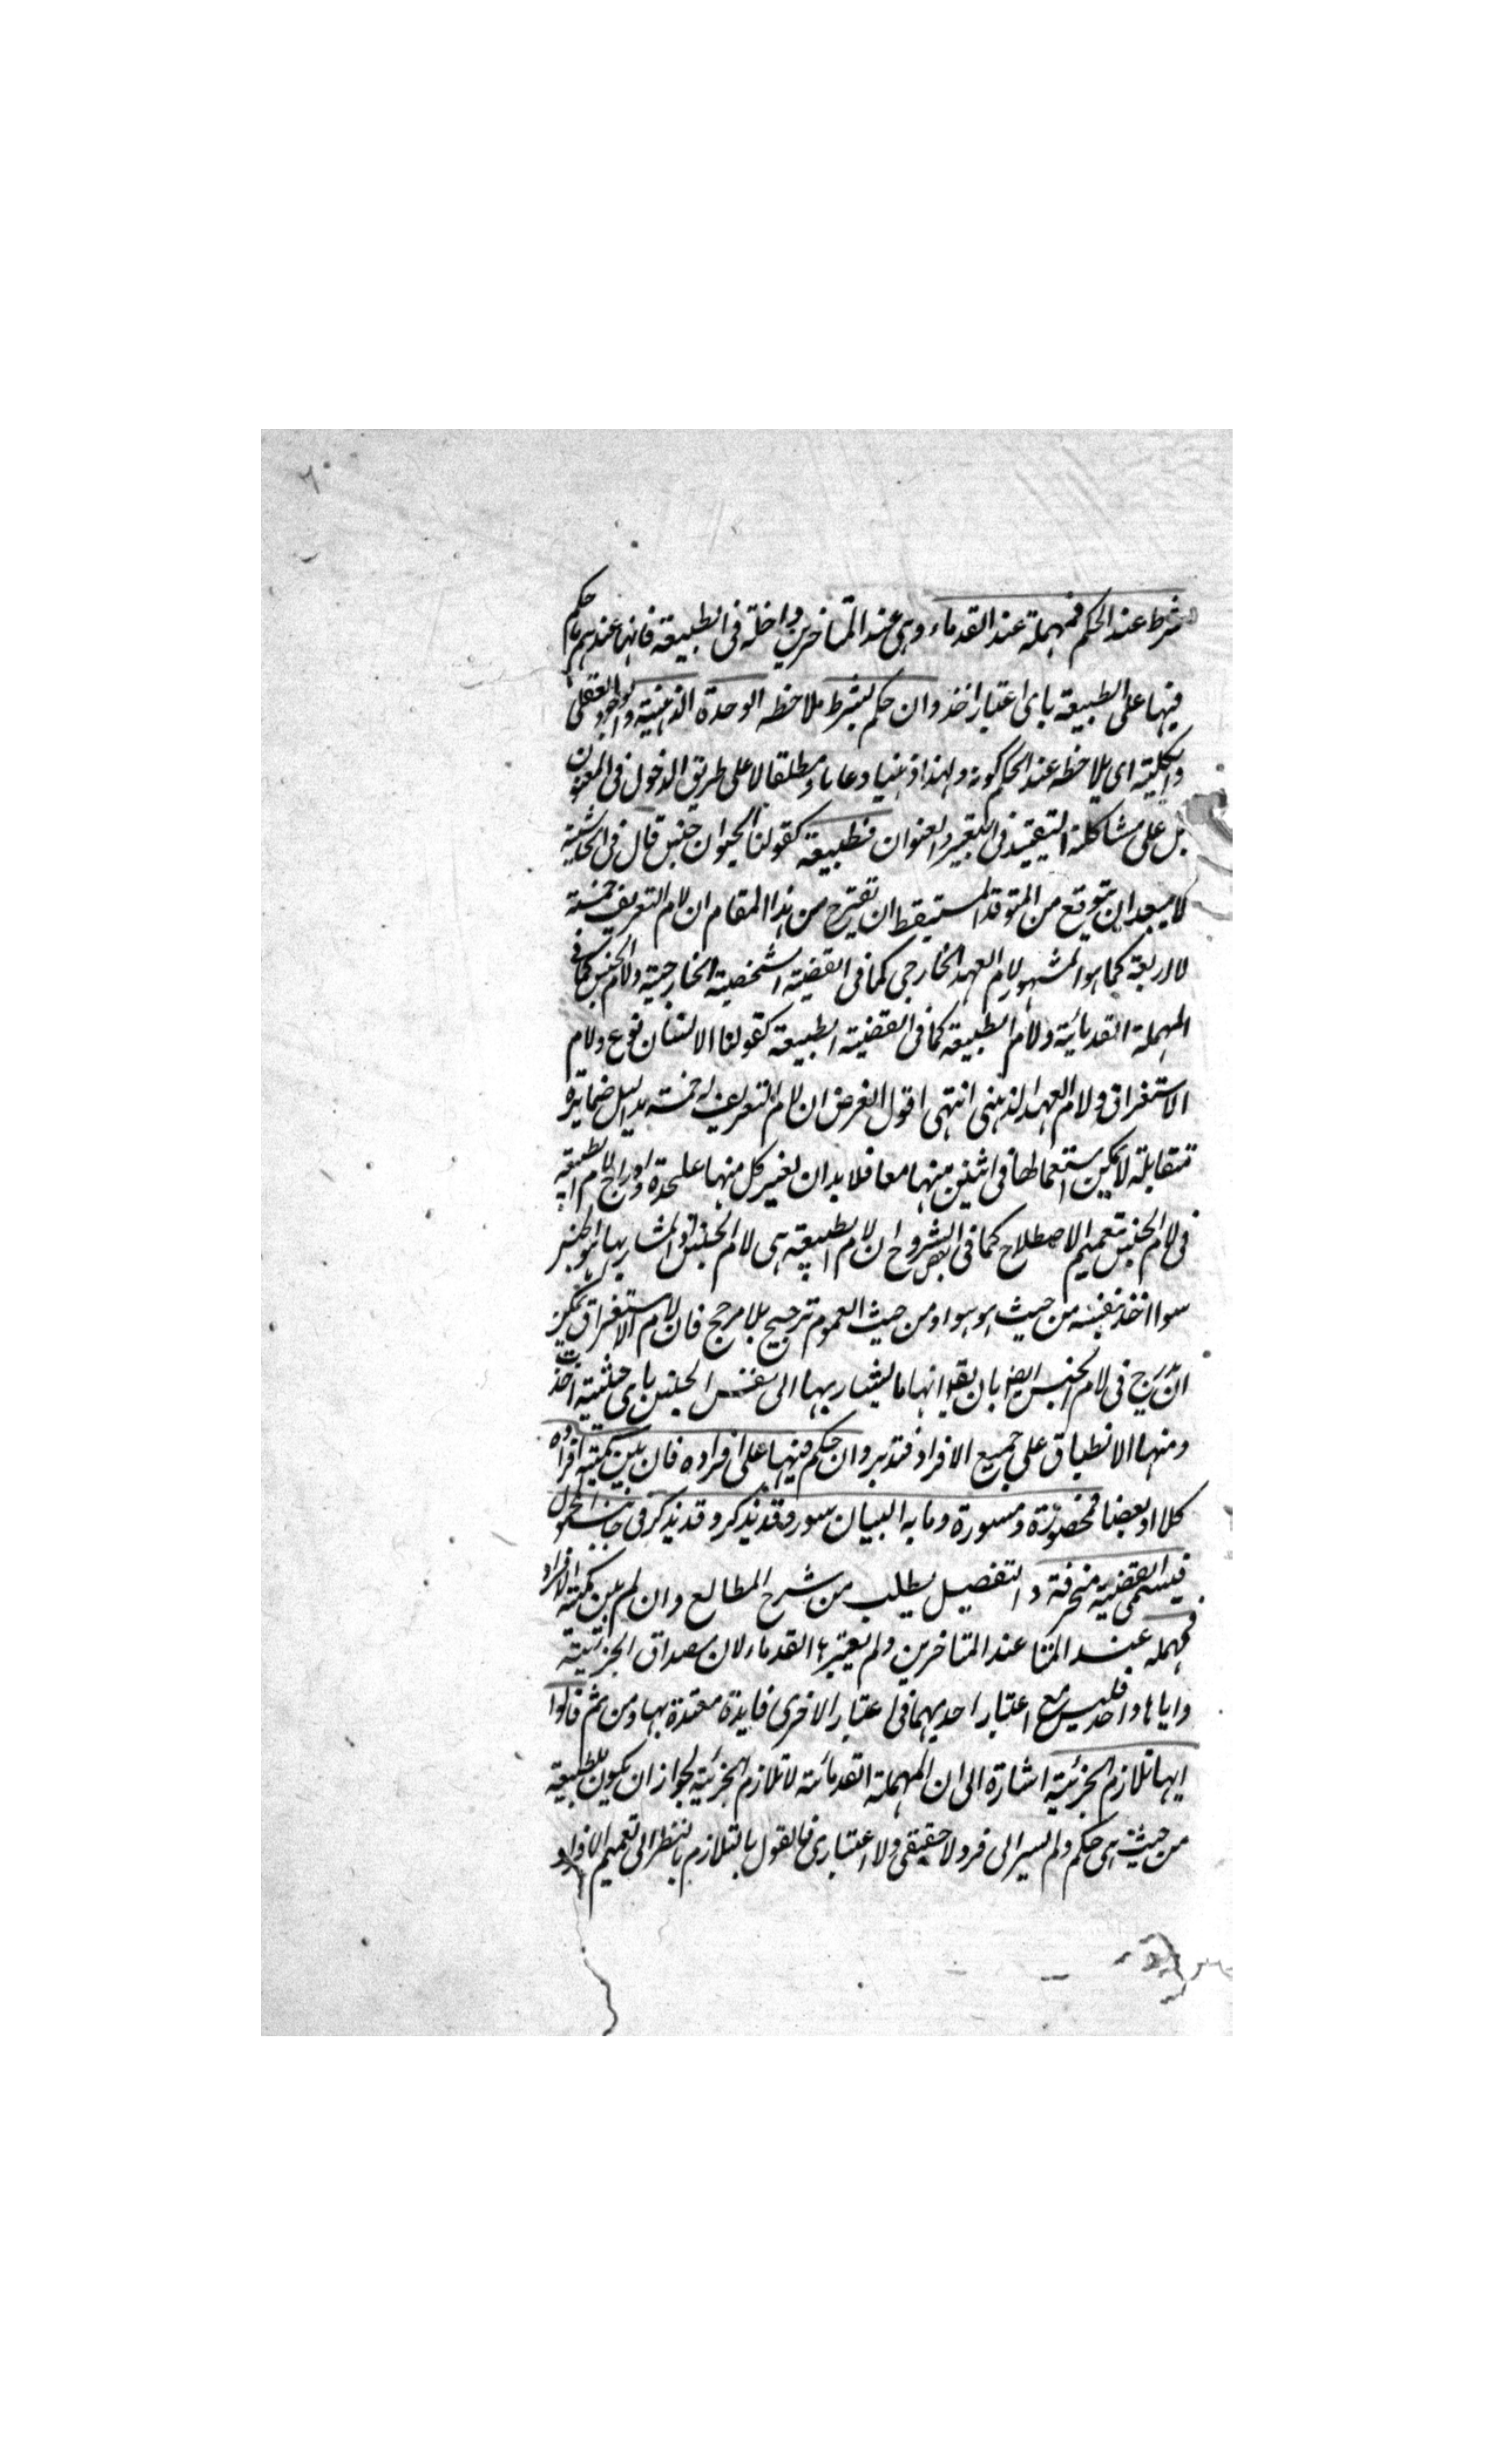 شرط عند الحكم فمهملة عند القدماء وهى عند المتاخرين داخلة فى الطبيعة فانها عندهم ما حكم
فيها على الطبيعة باى اعتبار اخذ وان حكم بشرط ملاحظه الوحدة الذهنية والوجود العقلى
والكلية اى يلاحظه عند الحكم كونه واحدا ذهنيا وعاما ومطلقا لا على طريق الدخول فى المعنون
بل على مشاكلة التقييد فى التعبير والعنوان فطبيعة كقولنا الحيوان جنس قال فى الحاشية
لا يبعد ان يتوقع من المتوقد المستيقظ ان يقترح من هذا المقام ان لام التعريف خمسة
لا اربعة كما هو المشهور لام العهد الخارجى كما فى القضية الشخصية الخارجية ولام الجنس كما فى
المهملة القدمائية ولام الطبيعة كما فى القضية الطبيعة كقولنا الانسان نوع ولام
الاستغراق ولام العهد الذهنى انتهى اقول الغرض ان لام التعريف خمسة بدليل
متقابلة لا يمكن استعمالها فى اثنين منها معا فلا بد ان يعتبر كل منها علىحدة وادراج لام الطبيعة
فى لام الجنس بتعميم الاصطلاح كما فى بعض الشروح ان لام الطبيعة هى لام الجنس والمشار بها هو الجنس
سوا اخذ نفسه من حيث هو هو او من حيث العموم ترجيح بلا مرجح فان لام الاستغراق يمكن
ان يدرج فى لام الجنس ايضا بان يقو انها ما يشار بها الى نفس الجنس باى حيثية اخذت
ومنها الانطباق على جميع الافراد فتدبر وان حكم فيها على افراده فان بين كمية افراده
كلا او بعضا فمحصورة ومسورة وما به البيان سور وقد يذكر وقد يذكر فى جانب المحمول
فيسمى القضية منحرفة والتفصيل يطلب من شرح المطالع وان لم يبين كمية الافراد
فمهمله عند المتا عند المتاخرين ولم يعتبر القدماء لان مصداق الجزئية
واياها واحد فليس مع اعتبار احديهما فى اعتبار الاخرى فايدة معتدة بها ومن ثم قالوا
انها تلازم الجزئية اشارة الى ان المهملة القدمائية لا تلازم الجزئية لجواز ان يكون للطبيعة
من حيث هى حكم ولم يسر الى فرد لا حقيقى ولا اعتبارى فالقول بالتلازم بالنظر الى تعميم الافراد